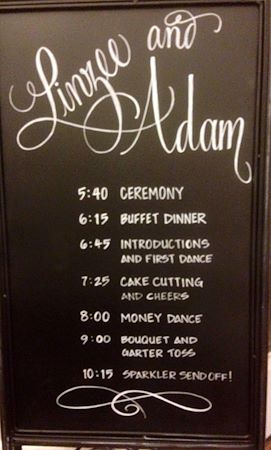 Linzee and
Adam
5:40 CEREMONY
6:15 BUFFET DINNER
6:45 INTRODUCTIONS
AND FIRST DANCE
7:25 CAKE CUTTING
AND CHEERS
8:00 MONEY DANCE
9:00 BOUQUET AND
GARTER TOSS
10:15 SPARKLER SEND OFF!